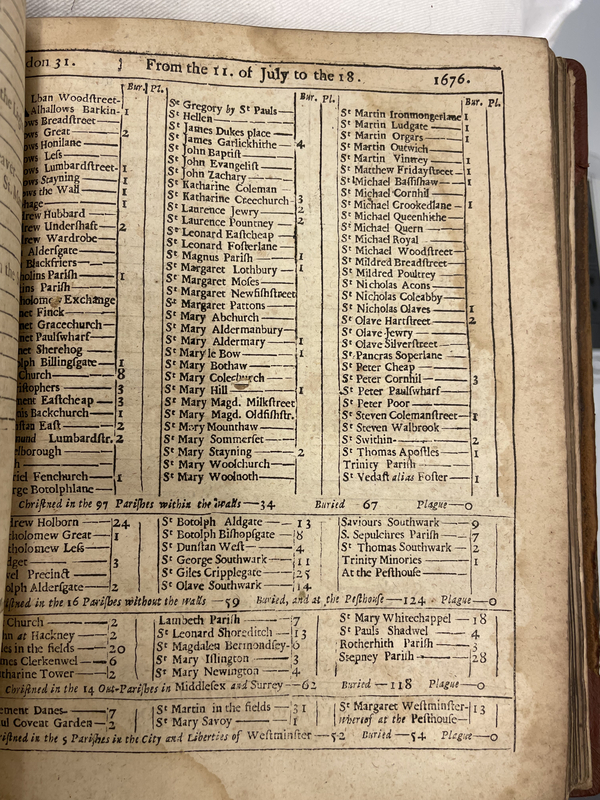 don 31. From the 11. of July to the 18. 1676.
Bur. Pl.
lban Woodſtreet-
Alhallows Barkin- 1
ows Breadſtreet
ows Great 2
ows Honilane
ows Leſs
ows Lumbardſtreet- 1
ows Stayning 1
ows the Wall 1
hage 1
rew Hubbard
rew Underſhaft 2
rew Wardrobe
Alderſgate
Blackfriers
holins Pariſh 1
ins Pariſh
holomew Exchange
net Finck
net Gracechurch
net Paulſwharf
net Sherehog
olph Billingſgate 1
Church 8
iſtophers 3
ment Eaſtcheap 3
nis Backchurch 1
ſtan Eaſt 2
mund Lumbardſtr. 2
lborough
h
riel Fenchurch 1
rge Botolphlane
Bur. Pl.
St Gregory by St Pauls
St Hellen
St James Dukes place
St James Garlickhithe 4
St John Baptiſt
St John Evangeliſt
St John Zachary
St Katharine Coleman
St Katharine Creechurch 3
St Laurence Jewry 2
St Laurence Pountney 2
St Leonard Eaſtcheap
St Leonard Foſterlane
St Magnus Pariſh 1
St Margaret Lothbury 1
St Margaret Moſes
St Margaret Newfiſhſtreet
St Margaret Pattons
St Mary Abchurch
St Mary Aldermanbury
St Mary Aldermary 1
St Mary le Bow 1
St Mary Bothaw
St Mary Colechurch
St Mary Hill 1
St Mary Magd. Milkſtreet
St Mary Magd. Oldfiſhſtr.
St Mary Mounthaw
St Mary Sommerſet
St Mary Stayning 2
St Mary Woolchurch
St Mary Woolnoth
Bur. Pl.
St Martin Ironmongerlane 1
St Martin Ludgate 1
St Martin Orgars 1
St Martin Outwich
St Martin Vintrey 1
St Matthew Fridayſtreet
St Michael Baſſiſhaw 1
St Michael Cornhil
St Michael Crookedlane 1
St Michael Queenhithe
St Michael Quern
St Michael Royal
St Michael Woodſtreet
St Mildred Breadſtreet
St Mildred Poultrey
St Nicholas Acons
St Nicholas Coleabby
St Nicholas Olaves 1
St Olave Hartſtreet 2
St Olave Jewry
St Olave Silverſtreet
St Pancras Soperlane
St Peter Cheap
St Peter Cornhil 3
St Peter Paulſwharf
St Peter Poor
St Steven Colemanſtreet 1
St Steven Walbrook
St Swithin 2
St Thomas Apoſtles 1
Trinity Pariſh
St Vedaſt alias Foſter 1
Chriſtned in the 97 Pariſhes within the walls — 34 Buried - 67 Plague — 0
drew Holborn 24
tholomew Great 1
tholomew Leſs
dget 3
vel Precinct
olph Alderſgate 2
St Botolph Aldgate 13
St Botolph Biſhopſgate 8
St Dunſtan Weſt 4
St George Southwark 11
St Giles Cripplegate 25
St Olave Southwark 14
Saviours Southwark 9
S. Sepulchres Pariſh 7
St Thomas Southwark 2
Trinity Minories 1
At the Peſthouſe
iſtned in the 16 Pariſhes without the walls — 59 Buried, and at the Peſthouſe — 124 Plague — 0
Church 2
hn at Hackney 2
les in the fields 20
mes Clerkenwel 6
tharine Tower 2
Lambeth Pariſh 7
St Leonard Shoreditch 13
St Magdalen Bermondſey- 6
St Mary Iſlington 3
St Mary Newington 4
St Mary Whitechappel 18
St Pauls Shadwel 4
Rotherhith Pariſh 3
Stepney Pariſh 28
Chriſtned in the 14 Out-Pariſhes in Middleſex and Surrey — 62 Buried — 118 Plague — 0
ement Danes 7
ul Covent Garden 2
St Martin in the fields 31
St Mary Savoy 1
St Margaret Weſtminſter- 13
whereof at the Peſthouſe-
riſtned in the 5 Pariſhes in the City and Liberties of Weſtminſter — 52 Buried — 54 Plague — 0